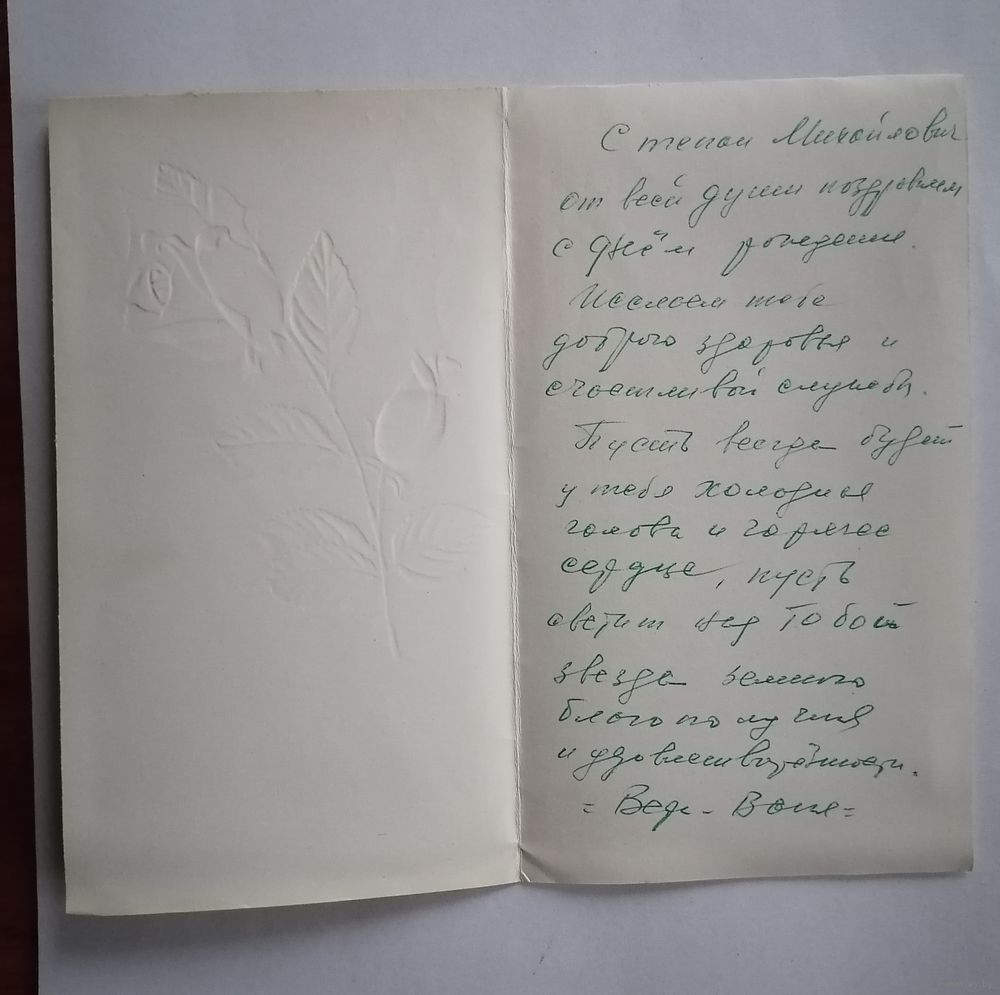 Степан Михайлович
от всей души поздравляем
с днём рождения.
Желаем тебе
доброго здоровья и
счастливой службы.
Пусть всегда будет
у тебя холодная
голова и горячее
сердце, пусть
светит над тобой
звезда земного
благополучия
и удовлетворённости.
= Вера - Ваня =